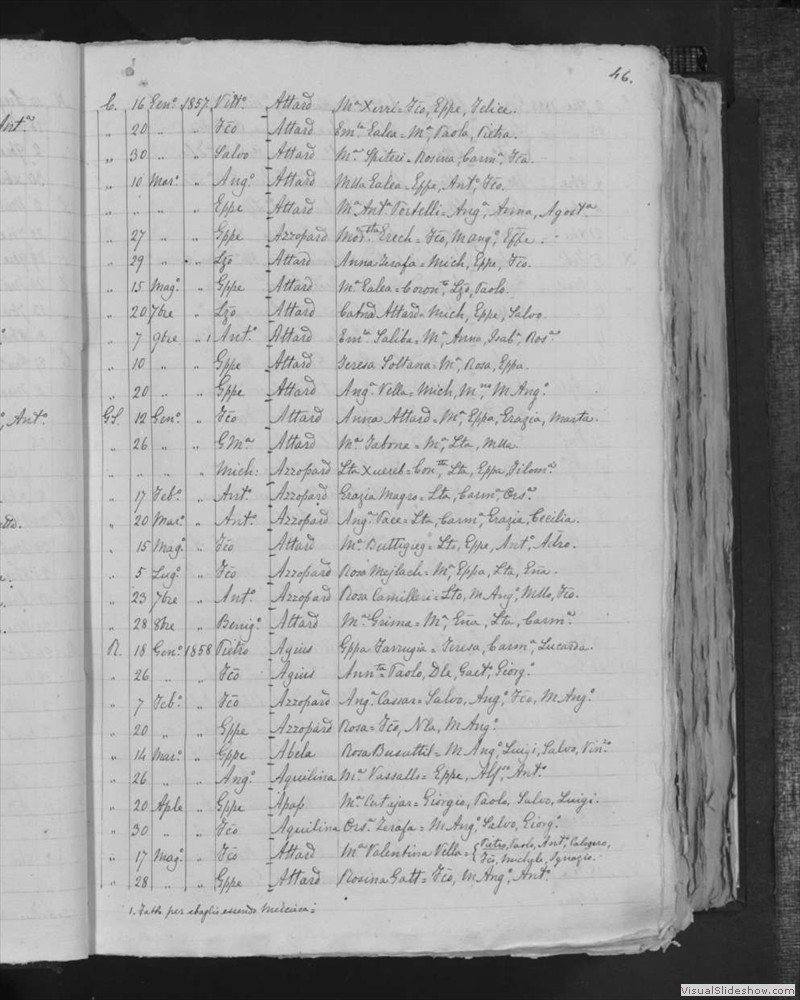 46.
C. 16 Genº 1857 Vittº Attard Mª Xerri = Fco, Eppe, Felice.
Antª
„ 20 „ „ Fco Attard Emª Galea = Mª Paola, Pietra.
„ 30 „ „ Salvo Attard Mª Spiteri = Rosina, Carmª, Fca.
„ 10 Marº „ Angº Attard Mlla Galea = Eppe, Antº, Fco.
„ „ „ „ Eppe Attard Mª Antª Portelli = Angª, Anna, Agostª
„ 27 „ „ Gppe Azzopard Modsta Grech = Fco, M Angº, Eppe.
„ 29 „ „ Lzo Attard Anna Zerafa = Mich, Eppe, Fco.
„ 15 Magº „ Gppe Attard Mª Galea = Coronª, Lzo, Paolo.
„ 20 7bre „ Lzo Attard Catna Attard = Mich, Eppe, Salvo
„ 7 9bre „ 1 Antº Attard Emª Saliba = Mª, Anna, Isabª, Rosª
„ 10 „ „ Gppe Attard Teresa Soltana = Mª, Rosa, Eppa.
„ 20 „ „ Gppe Attard Angª Vella = Mich, Mª, M Angº
º, Antº
GS. 12 Genº „ Fco Attard Anna Attard = Mª, Eppa, Grazia, Marta.
„ 26 „ „ G Mª Attard Mª Tabone = Mª, Lta, Mlla
„ „ „ „ Mich: Azzopard Lta Xuereb = Lta, Eppa, Filomª
„ 17 Febº „ Antº Azzopard Grazia Magro = Lta, Carmª, Orsª
„ 20 Marº „ Antº Azzopard Angª Pace = Lta, Carmª, Grazia, Cecilia.
„ 15 Magº „ Fco Attard Mª Buttigieg = Lto, Eppe, Antº
„ 5 Lugº „ Fco Azzopard Rosa Mejlach = Mª, Eppa, Lta
„ 23 7bre „ Antº Azzopard Rosa Camilleri = Lto, M Angº, Mllo, Fco.
„ 28 8bre „ Benigº Attard Mª Grima = Mª, Lta, Carmª
R. 18 Genº 1858 Pietro Agius Gppa Farrugia = Teresa, Carmª, Lucarda.
„ 26 „ „ Fco Agius Annta = Paolo, Gaetº, Giorgº
„ 7 Febº „ Fco Azzopard Angª Cassar = Salvo, Angº, Fco, M Angº
„ 20 „ „ Gppe Azzopard Rosa = Fco, Nla, M Angº
„ 14 Marº „ Gppe Abela Rosa Busuttil = M Angº, Luigi, Salvo, Vinº
„ 26 „ „ Angº Aquilina Mª Vassallo = Eppe, Antº
„ 20 Aple „ Gppe Apap Mª Cutajar = Giorgio, Paolo, Salvo, Luigi.
„ 30 „ „ Fco Aquilina Orsª Zerafa = M Angº, Salvo, Giorgº
„ 17 Magº „ Fco Attard Mª Valentina Vella = { Pietro, Paolo, Antº, Calogero,
Fco, Michele, Ignazio.
„ 28 „ „ Gppe Attard Rosina Gatt = Fco, M Angº, Antº
1. Fatto per sbaglio essendo
VisualSlideshow.com